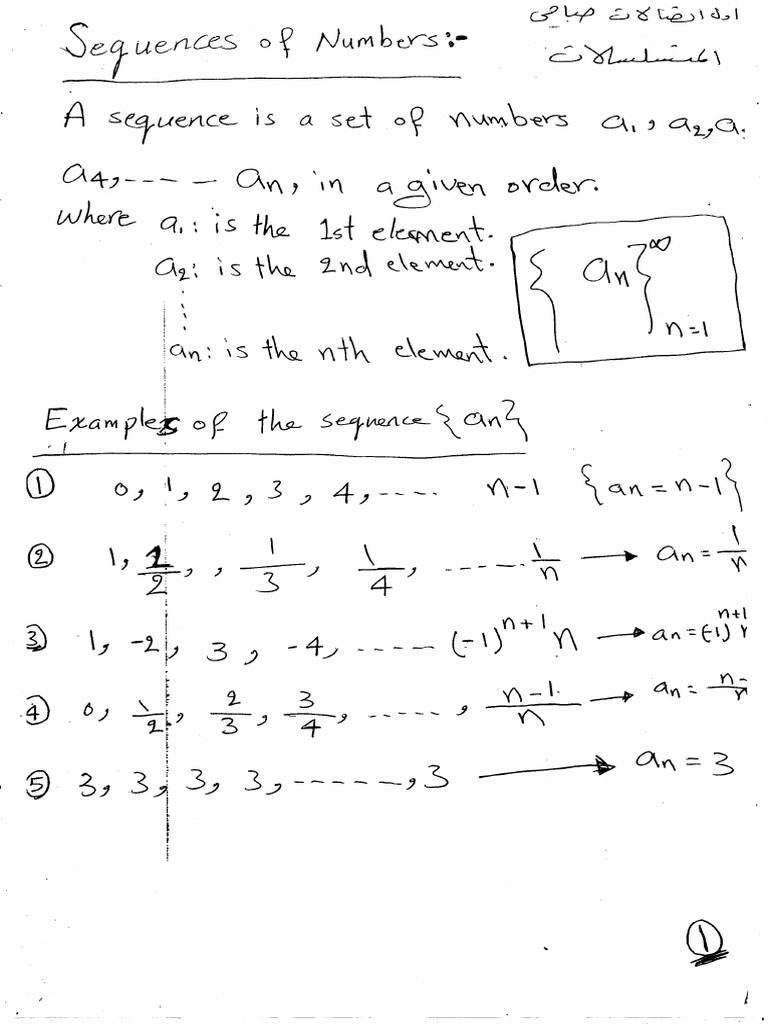 Sequences of Numbers:-
المتسلسلات
A sequence is a set of numbers a₁, a₂, a
a₄, ---- – an, in a given order.
where a₁: is the 1st element.
a₂: is the 2nd element.
{an}^∞ n=1
⋮
an: is the nth element.
Examples of the sequence {an}
① 0, 1, 2, 3, 4, .... n-1 {an = n-1}
② 1, 1/2, , 1/3, 1/4, ...... 1/n → an = 1/n
③ 1, -2, 3, -4, ..... (-1)^n+1 n → an = (-1)^n+1
④ 0, 1/2, 2/3, 3/4, ....., n-1/n → an = n-/n
⑤ 3, 3, 3, 3, ......, 3 → an = 3
①